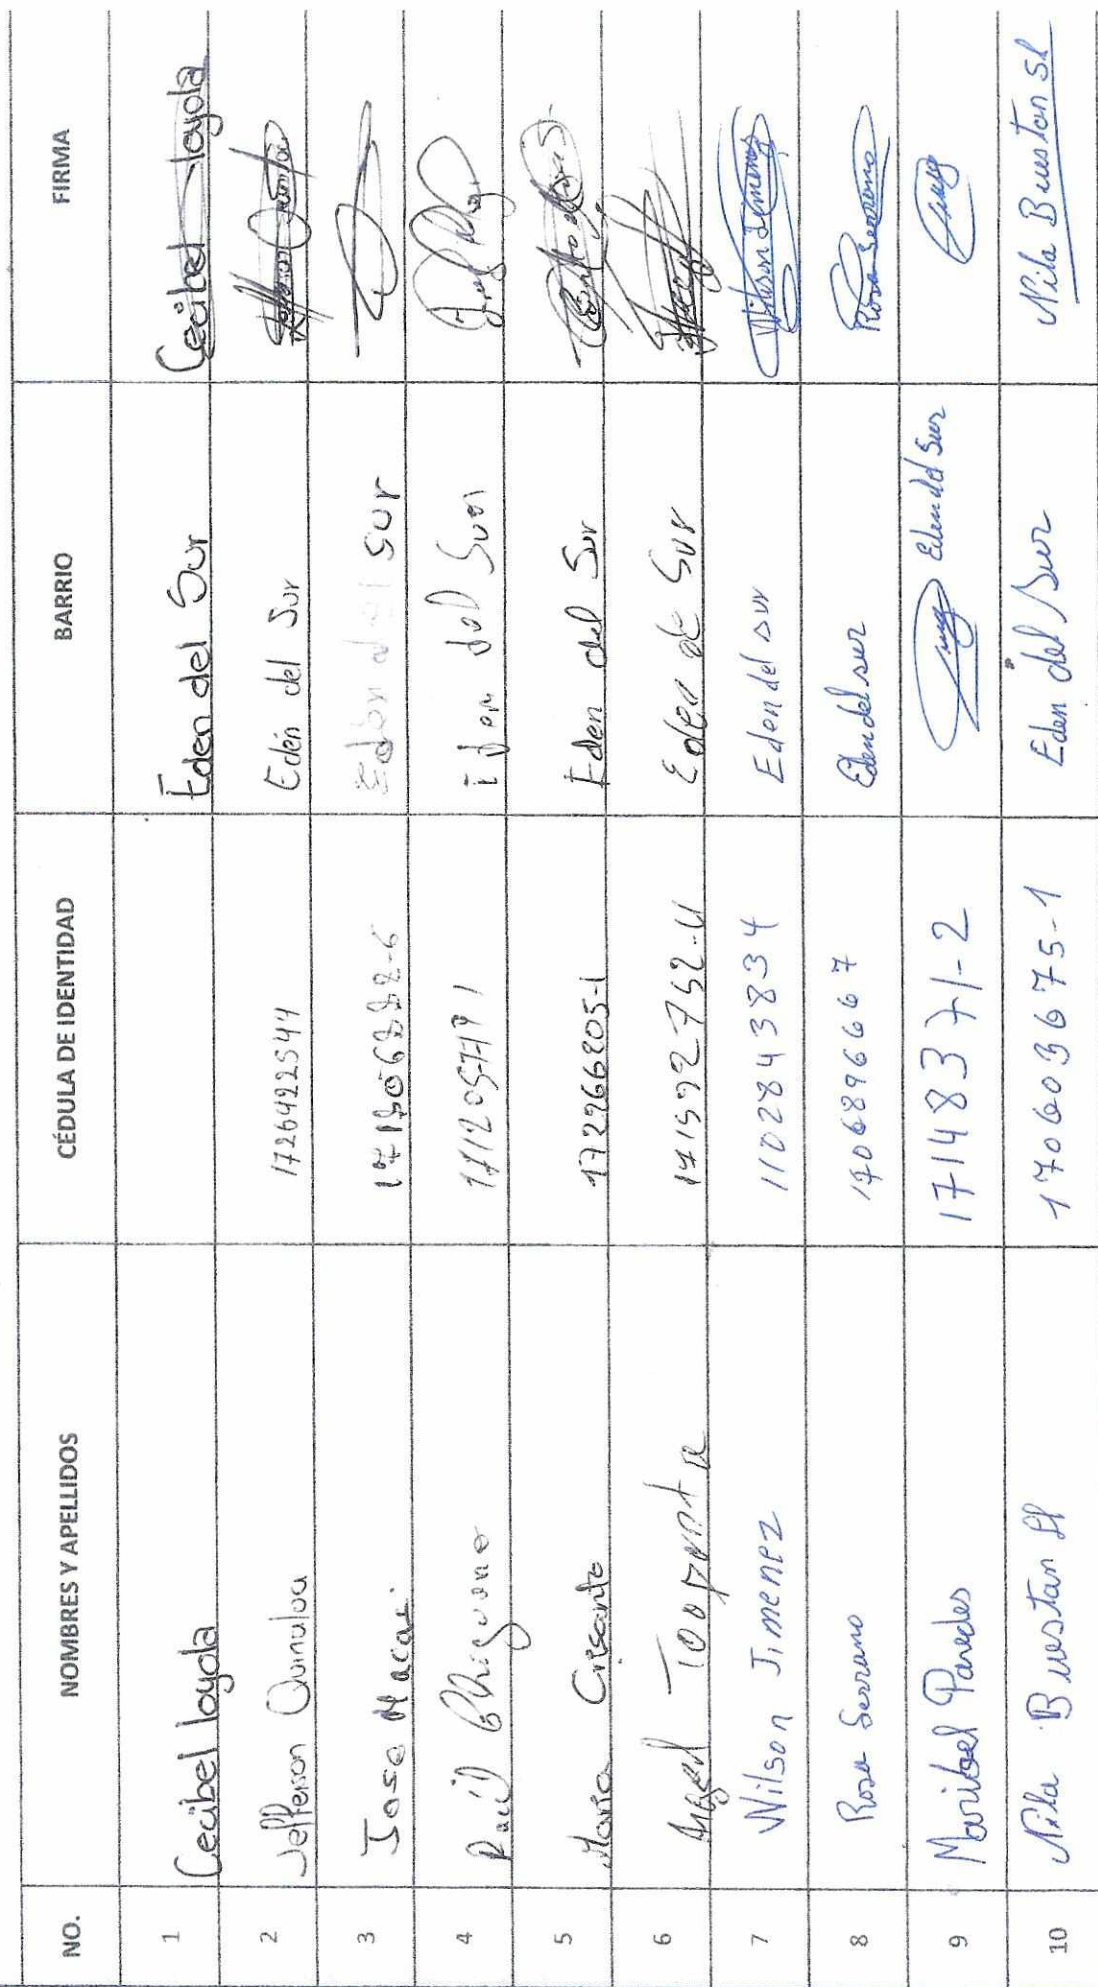 NO. NOMBRES Y APELLIDOS CÉDULA DE IDENTIDAD BARRIO FIRMA
1 Cecibel loyola Eden del Sur Cecibel loyola
2 Jefferson Quinaluoa 1726422544 Edén del Sur
3 Jose Macas. Eden del sur
4 Raúl Chiguano del Sur
5 Maria Crisanto 172966205-1 Eden del Sur
6 Angel Toapanta 171592752-4 Eden de Sur
7 Wilson Jimenez 1102843834 Eden del sur Wilson Jimenez
8 Rosa Serrano 1706896667 Eden del sur Rosa Serrano
9 Maribel Paredes 17148371-2 Eden del Sur
10 Nila Buestan Sl 170603675-1 Eden del Sur Nila Buestan Sl